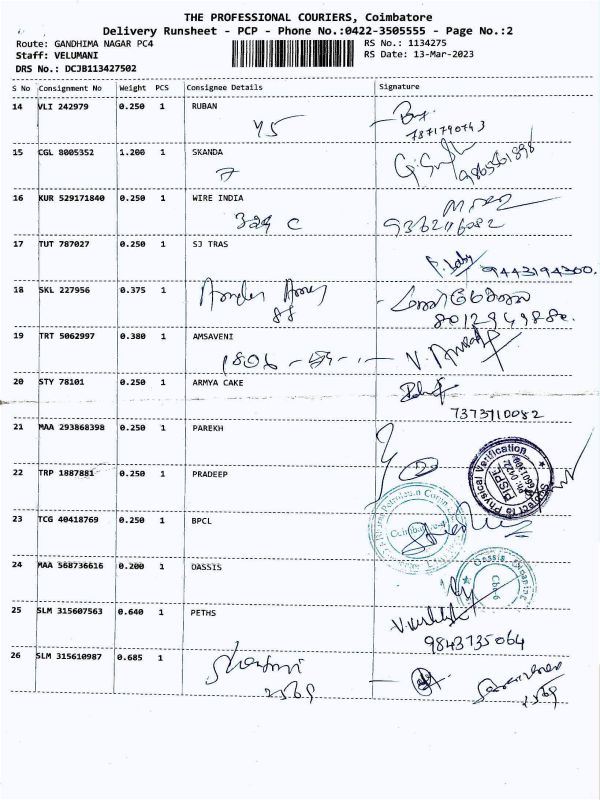 THE PROFESSIONAL COURIERS, Coimbatore
Delivery Runsheet - PCP - Phone No.:0422-3505555 - Page No.:2
Route: GANDHIMA NAGAR PC4
RS No.: 1134275
Staff: VELUMANI
RS Date: 13-Mar-2023
DRS No.: DCJB113427502
S No Consignment No Weight PCS Consignee Details Signature
14 VLI 242979 0.250 1 RUBAN
45
7871790743
15 CGL 8005352 1.200 1 SKANDA
7
16 KUR 529171840 0.250 1 WIRE INDIA
324 C
9362116082
17 TUT 787027 0.250 1 SJ TRAS
9443194300.
18 SKL 227956 0.375 1
88
8012949880.
19 TRT 5062997 0.380 1 AMSAVENI
1806
20 STY 78101 0.250 1 ARMYA CAKE
7373710082
21 MAA 293868398 0.250 1 PAREKH
22 TRP 1887881 0.250 1 PRADEEP
Subject to Physical Verification
23 TCG 40418769 0.250 1 BPCL
Coimbatore-4
24 MAA 568736616 0.200 1 OASSIS
25 SLM 315607563 0.640 1 PETHS
9843735064
26 SLM 315610987 0.685 1
2569
2569